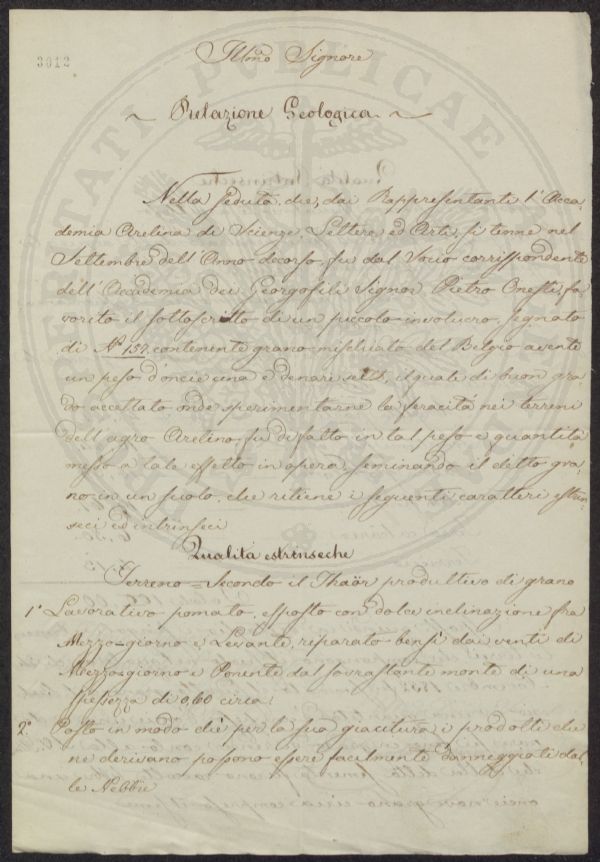 3012
Illmo Signore
Relazione Geologica
Nella Seduta che, dai Rappresentanti l'Acca-
demia Aretina di Scienze, Lettere, ed Arti, si tenne nel
Settembre dell'Anno decorso, fu dal Socio corrispondente
dell'Accademia dei Georgofili Signor Pietro Onesti, fa-
vorito il sottoscritto di un piccolo involucro, segnato
di N° 157, contenente grano mischiato del Belgio avente
un peso d'oncie una e denari sett, il quale di buon gra-
do accettato onde sperimentarne la feracità nei terreni
dell'agro Aretino, fu di fatto in tal peso e quantità
messo a tale effetto in opera, seminando il detto gra-
no in un suolo, che ritiene i seguenti caratteri estrin-
seci ed intrinseci
Qualità estrinseche
Terreno = Secondo il Thaör produttivo di grano
1° Lavorativo pomato, esposto con dolce inclinazione fra
Mezzo=giorno e Levante, riparato bensì dai venti di
Mezzo=giorno e Ponente dal sovrastante monte di una
spessezza di 0,60 circa:
2° Posto in modo che per la sua giacitura, i prodotti che
ne derivano possono essere facilmente danneggiati dal-
le Nebbie